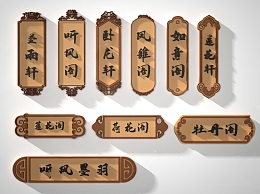 听雨轩
听风阁
卧龙轩
风雅阁
如意阁
莲花轩
莲花阁
荷花阁
牡丹阁
听风墨羽